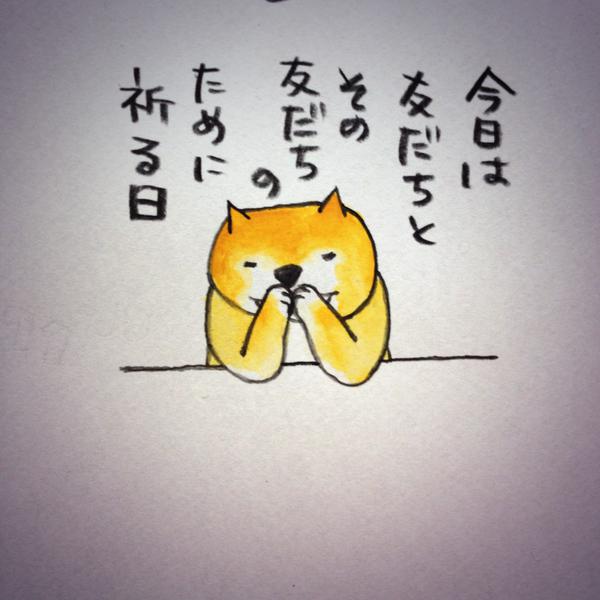 今日は
友だちと
その
友だちの
ために
祈る日